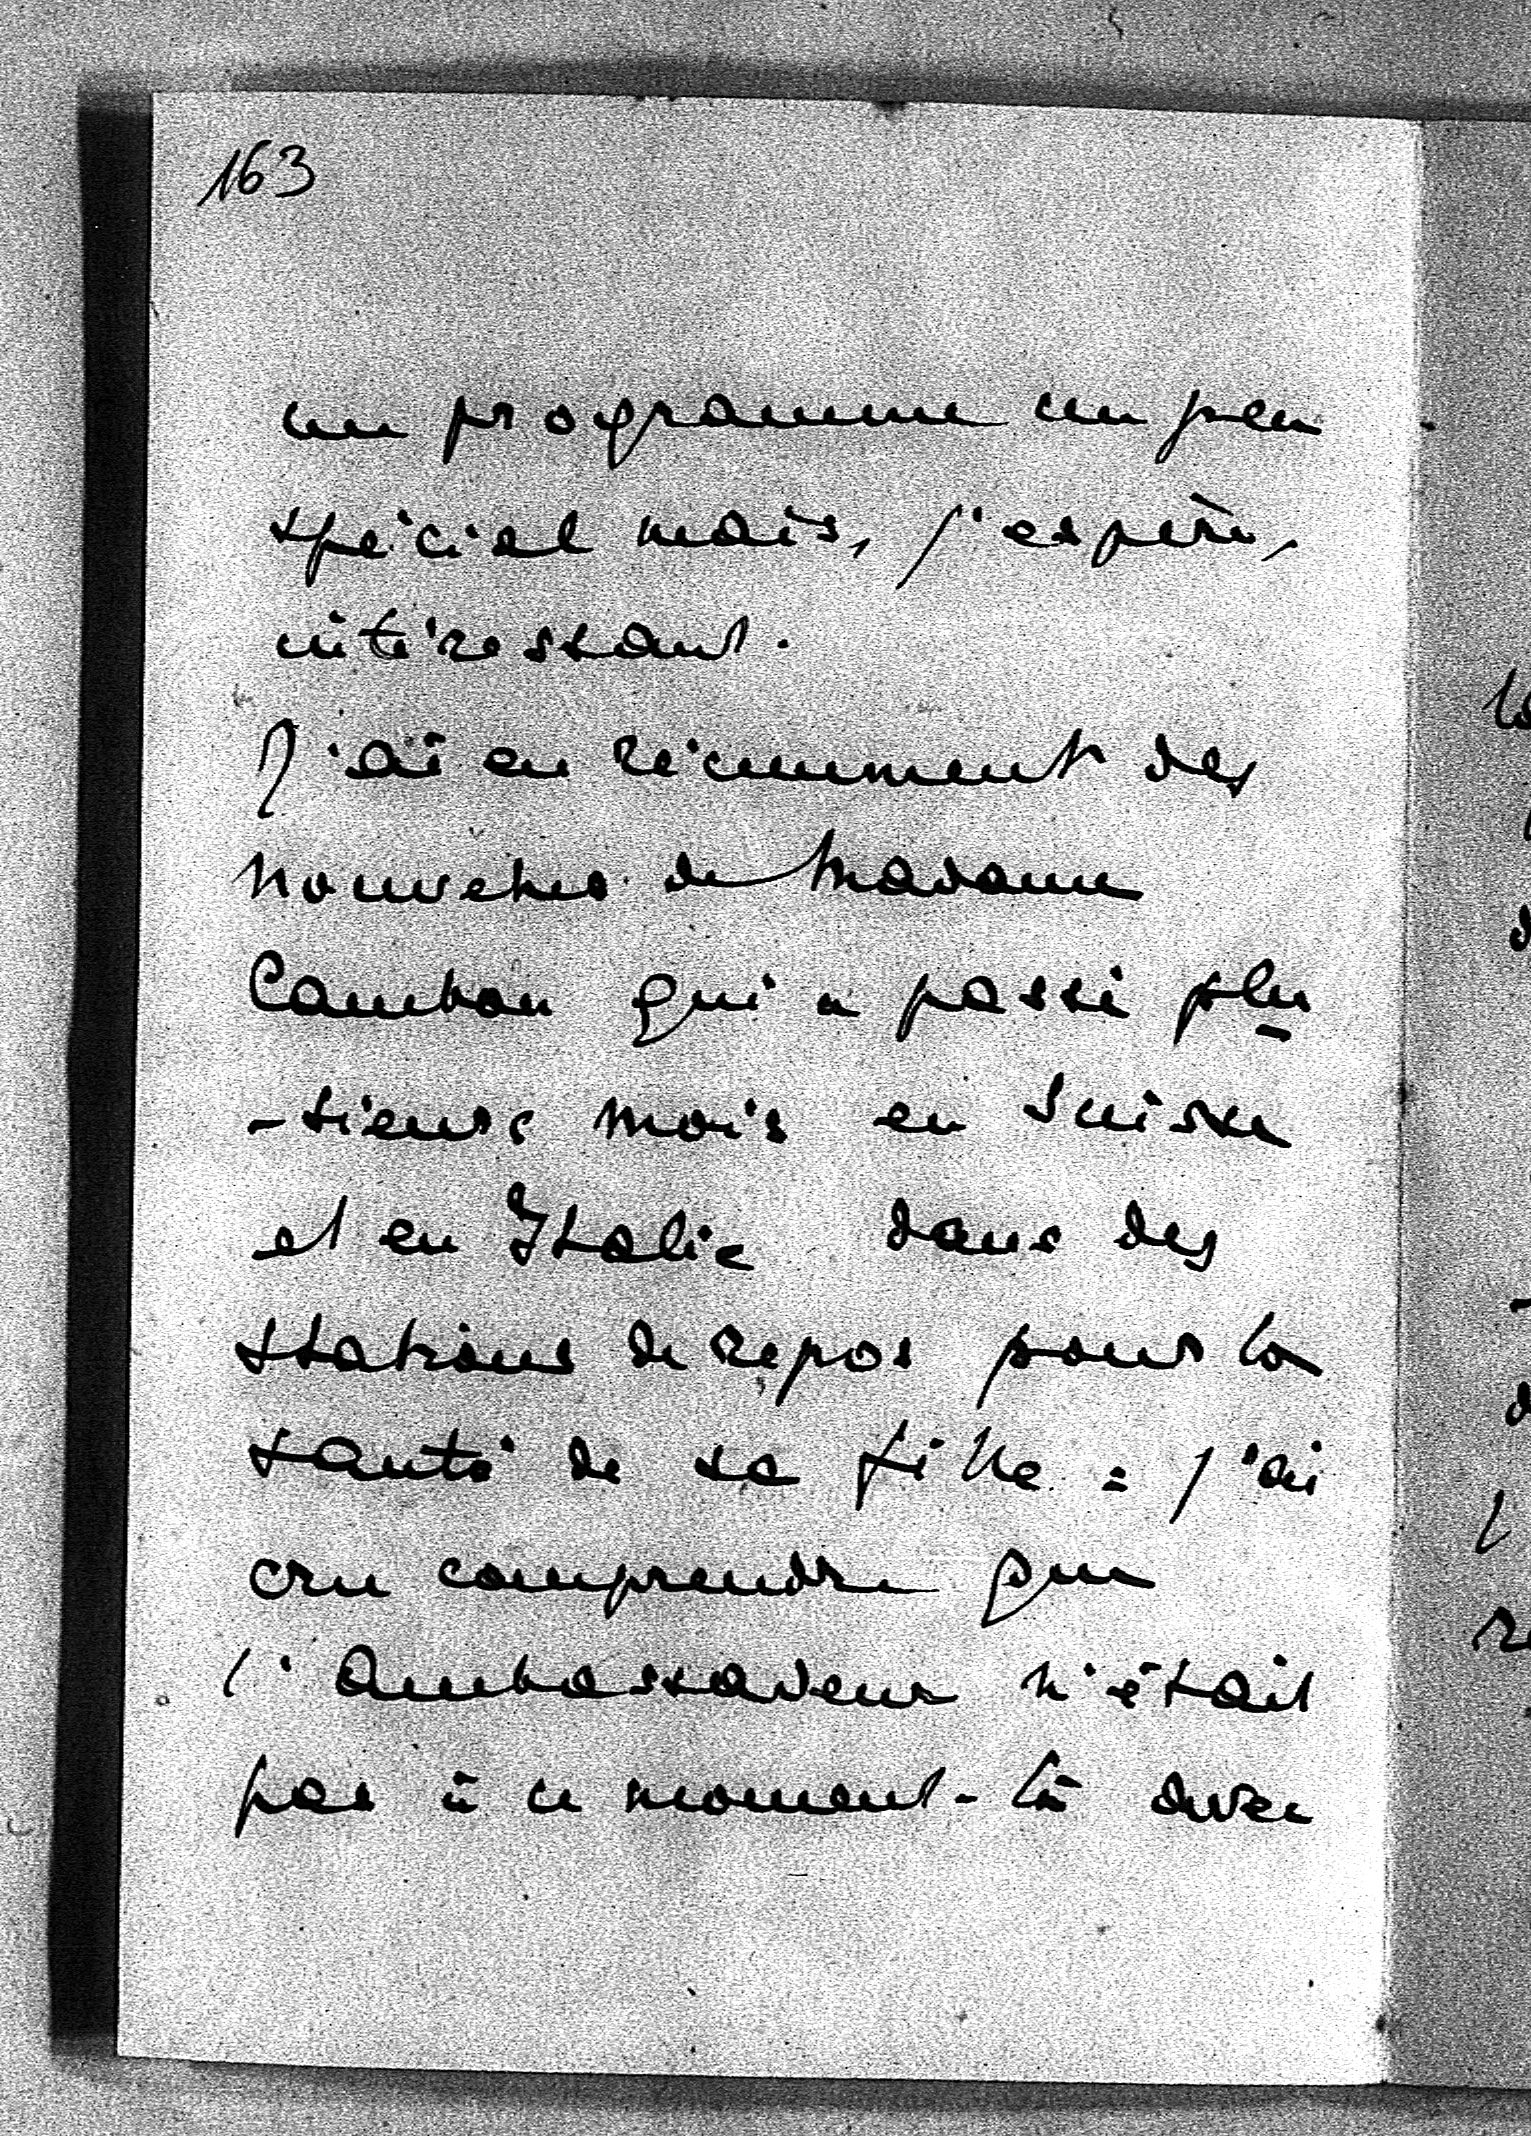 163
un programme un peu
spécial mais, j'espère,
intéressant.
J'ai eu récemment des
nouvelles de Madame
Cambon qui a passé plu
-sieurs mois en Suisse
et en Italie dans des
stations de repos pour la
santé de sa fille : j'ai
cru comprendre que
l'Ambassadeur n'était
pas à ce moment-là avec